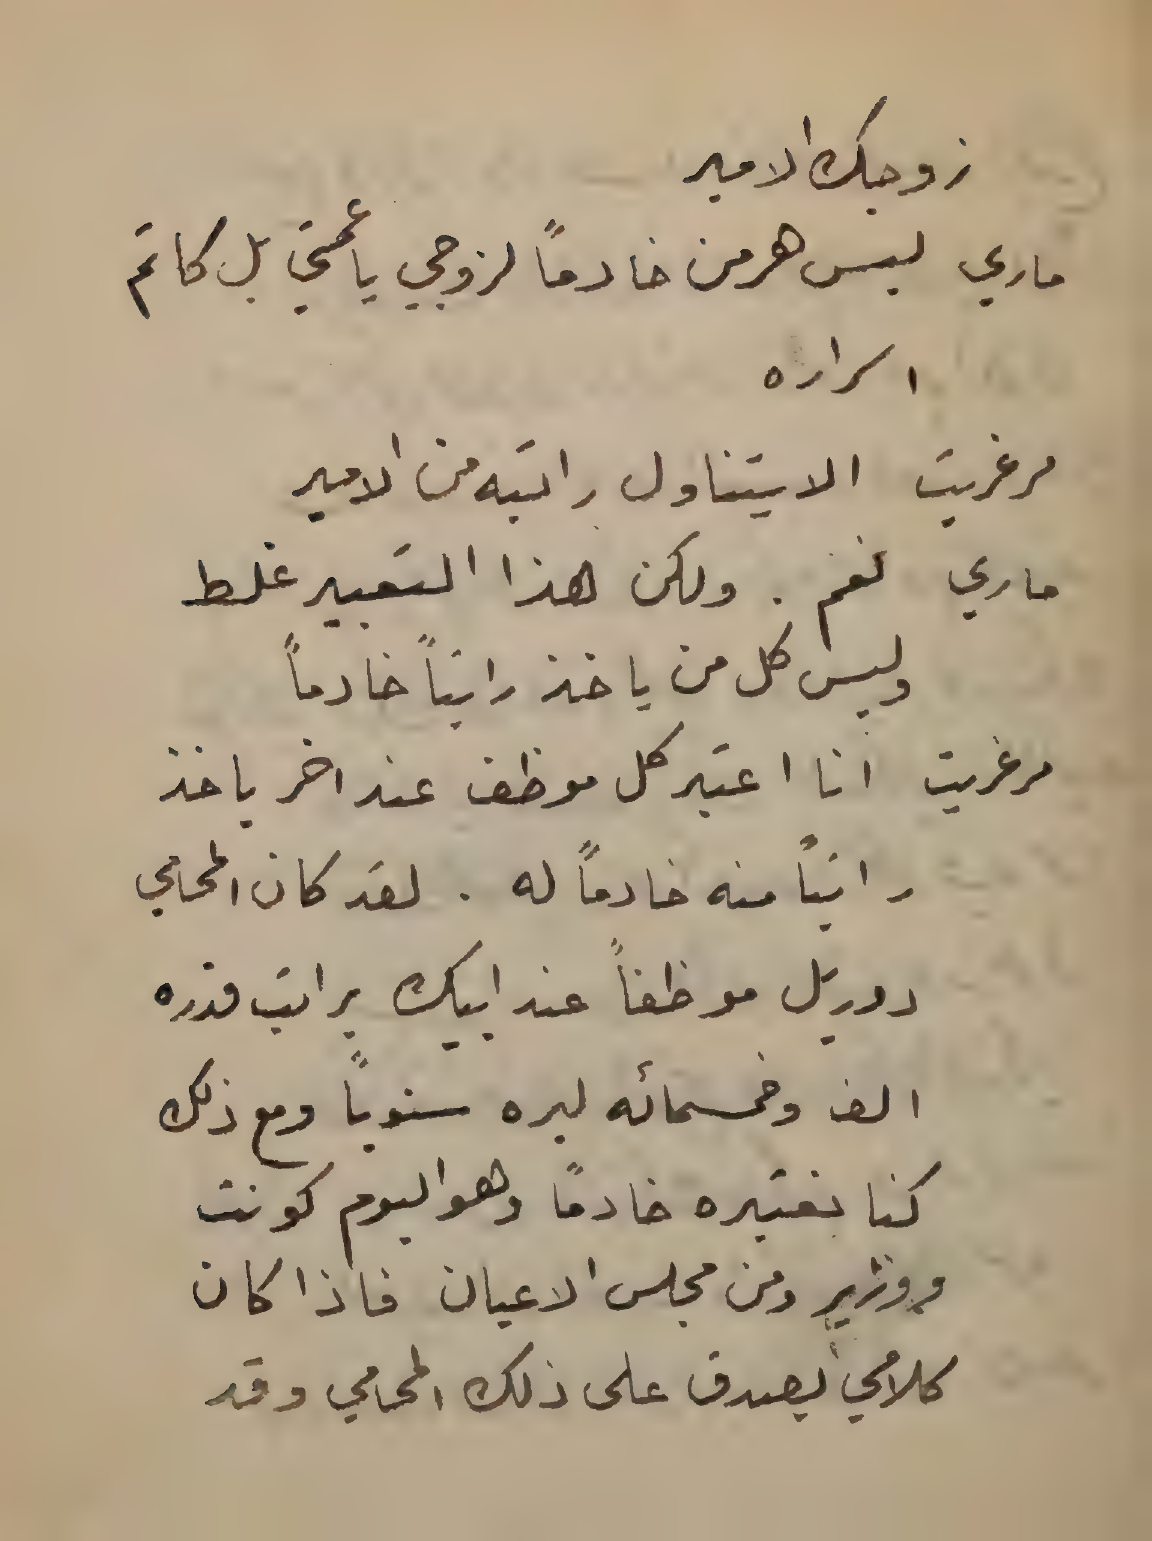 زوجك الامير
ماري ليس هرمن خادماً لزوجي يا عمتي بل كاتم
اسراره
مرغريت الا يتناول راتبه من الامير
ماري نعم . ولكن هذا التعبير غلط
وليس كل من ياخذ راتباً خادماً
مرغريت انا اعتبر كل موظف عند اخر ياخذ
راتباً منه خادماً له . لقد كان المحامي
دوريل موظفاً عند ابيك براتب قدره
الف وخمسمائه ليره سنوياً ومع ذلك
كنا نعتبره خادماً وهو اليوم كونت
ووزير ومن مجلس الاعيان فاذا كان
كلامي يصدق على ذلك المحامي وقد